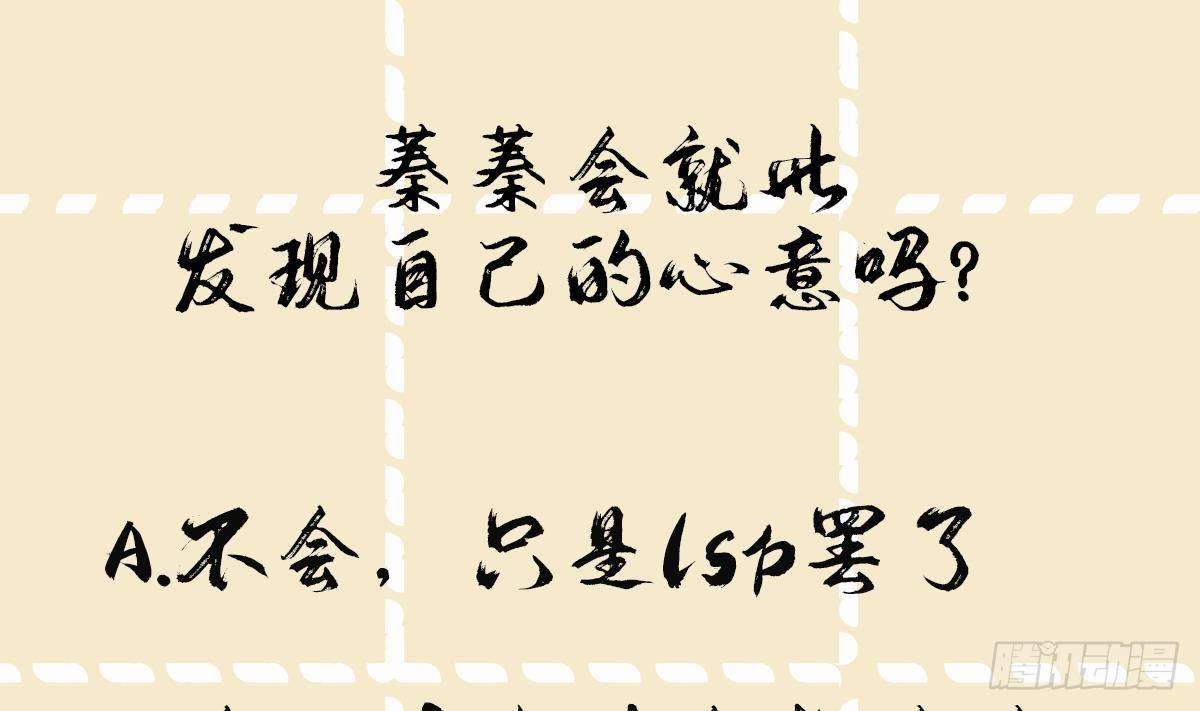 蓁蓁会就此
发现自己的心意吗?
A.不会，只是lsp罢了
腾讯动漫